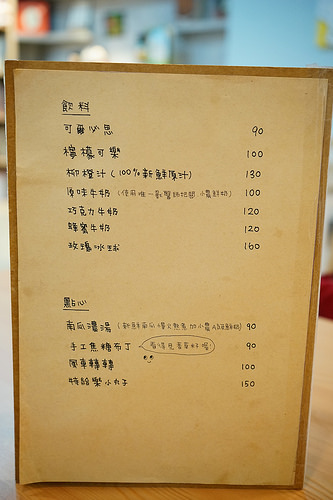 飲料
可爾必思 90
檸檬可樂 100
柳橙汁 (100%新鮮原汁) 130
原味牛奶 (使用唯一 小農鮮奶) 100
巧克力牛奶 120
蜂蜜牛奶 120
玫瑰冰球 160
點心
南瓜濃湯 (新鮮南瓜慢火熬煮加小農鮮奶) 90
手工焦糖布丁 看得見香草籽喔! 90
風車轉轉 100
特哈樂小丸子 150